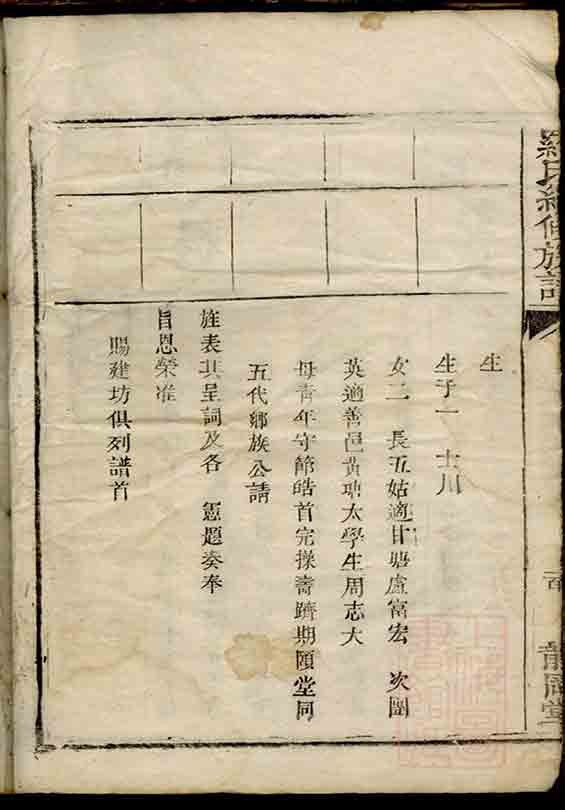 羅氏續修族譜
龍岡堂
生
生子一 士川
女二 長五姑適甘塘盧富宏 次團
英適善邑黃塘太學生周志大
母青年守節皓首完操壽躋期頤堂同
五代鄉族公請
旌表其呈詞及各 憲題奏奉
旨恩榮准
賜建坊俱列譜首